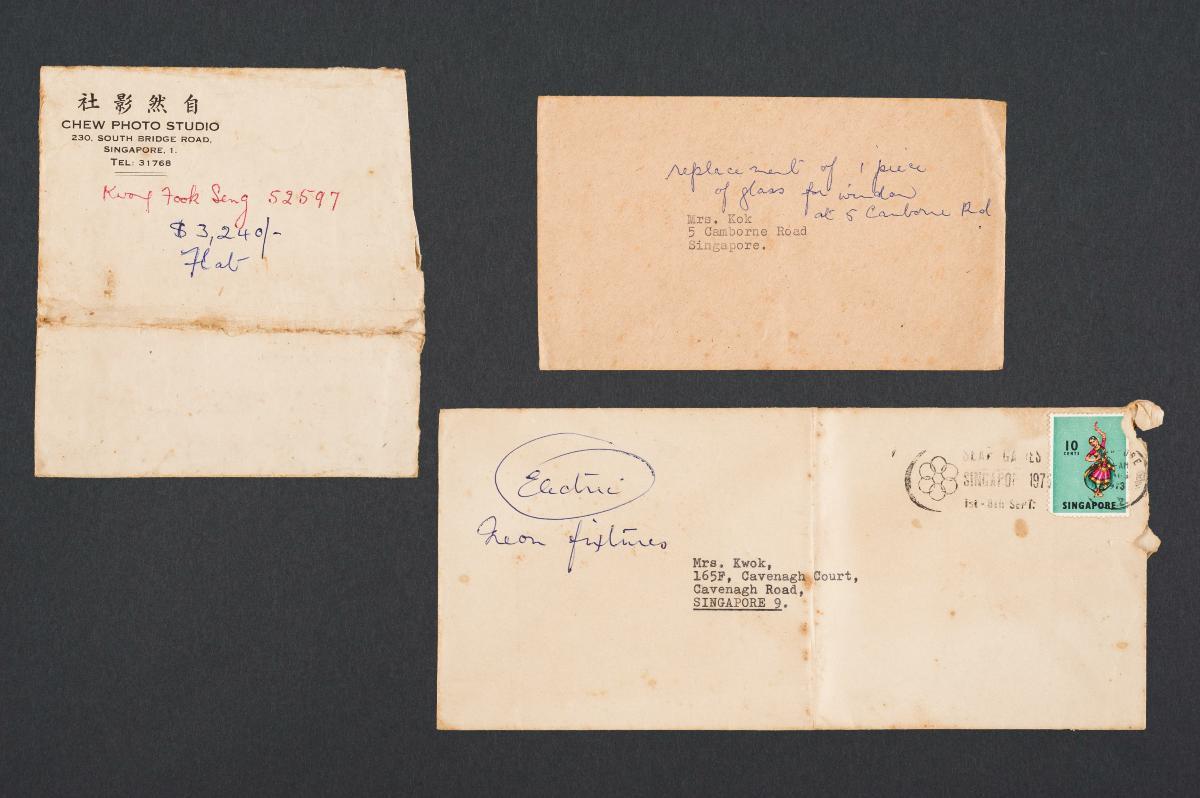 自然影社
CHEW PHOTO STUDIO
230, SOUTH BRIDGE ROAD,
SINGAPORE, 1.
TEL: 31768
Kwong Fook Seng 52597
$3,240/-
Flat
replacement of 1 piece
of glass for window
at 5 Camborne Rd
Mrs. Kok
5 Camborne Road
Singapore.
Electric
Neon fixtures
Mrs. Kwok,
165F, Cavenagh Court,
Cavenagh Road,
SINGAPORE 9.
SEAP GAMES
SINGAPORE 1973
1st-8th SEPT:
10
CENTS
SINGAPORE